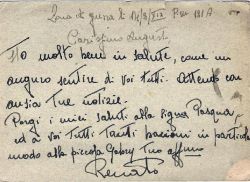 Zona di guerra li 16/3/XIX P.M. 121 A
Carissimo August
Sto molto bene in salute, come mi
auguro sentire di voi tutti. Attendo con
ansia tue notizie.
Porgi i miei saluti alla signa Pasqua,
ed a voi tutti tanti bacioni in partico
modo alla piccola tuo affmo
Renato